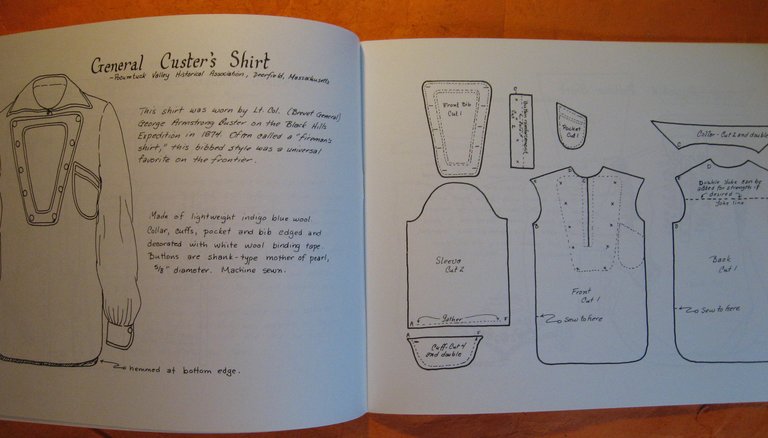 General Custer's Shirt
- Pocumtuck Valley Historical Association, Deerfield, Massachusetts
This shirt was worn by Lt. Col. (Brevet General)
George Armstrong Custer on the Black Hills
Expedition in 1874. Often called a "fireman's
shirt," this bibbed style was a universal
favorite on the frontier.
Made of lightweight indigo blue wool.
Collar, cuffs, pocket and bib edged and
decorated with white wool binding tape.
Buttons are shank-type mother of pearl,
5/8" diameter. Machine sewn.
hemmed at bottom edge.
Front Bib
Cut 1
Cut 2
Pocket
Cut 1
Collar - Cut 2 and double
Sleeve
Cut 2
Gather
A
Cuff - Cut 4
and double
Front
Cut 1
Sew to here
Double Yoke can be
added for strength if
desired
Yoke line
Back
Cut 1
Sew to here